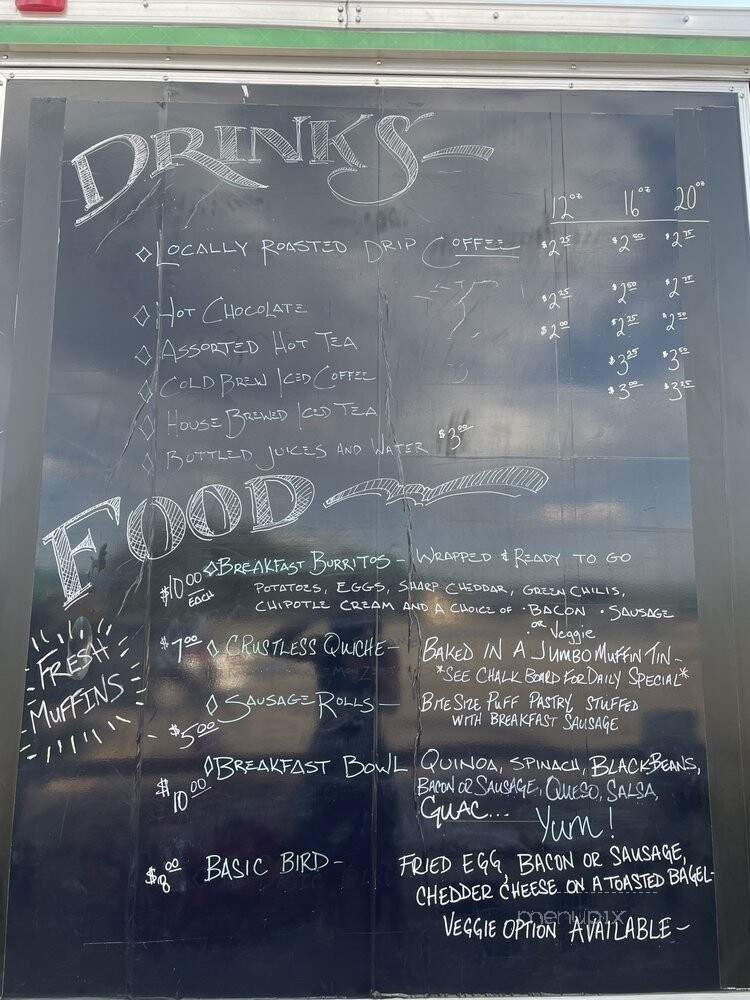 DRINKS
12oz 16oz 20oz
LOCALLY ROASTED DRIP COFFEE $2.25 $2.50 $2.75
HOT CHOCOLATE $2.25 $2.50 $2.75
ASSORTED HOT TEA $2.00 $2.25 $2.50
COLD BREW ICED COFFEE $3.25 $3.50
HOUSE BREWED ICED TEA $3.00 $3.25
BOTTLED JUICES AND WATER $3.00
FOOD
$10.00 EACH BREAKFAST BURRITOS - WRAPPED & READY TO GO
POTATOES, EGGS, SHARP CHEDDAR, GREEN CHILIS,
CHIPOTLE CREAM AND A CHOICE OF · BACON · SAUSAGE
or Veggie
$7.00 CRUSTLESS QUICHE - BAKED IN A JUMBO MUFFIN TIN -
*SEE CHALK BOARD FOR DAILY SPECIAL*
FRESH
MUFFINS
$5.00 SAUSAGE ROLLS - BITE SIZE PUFF PASTRY STUFFED
WITH BREAKFAST SAUSAGE
$10.00 BREAKFAST BOWL QUINOA, SPINACH, BLACK BEANS,
BACON OR SAUSAGE, QUESO, SALSA,
GUAC... Yum!
$8.00 BASIC BIRD - FRIED EGG, BACON OR SAUSAGE,
CHEDDER CHEESE ON A TOASTED BAGEL-
menupix
VEGGIE OPTION AVAILABLE -